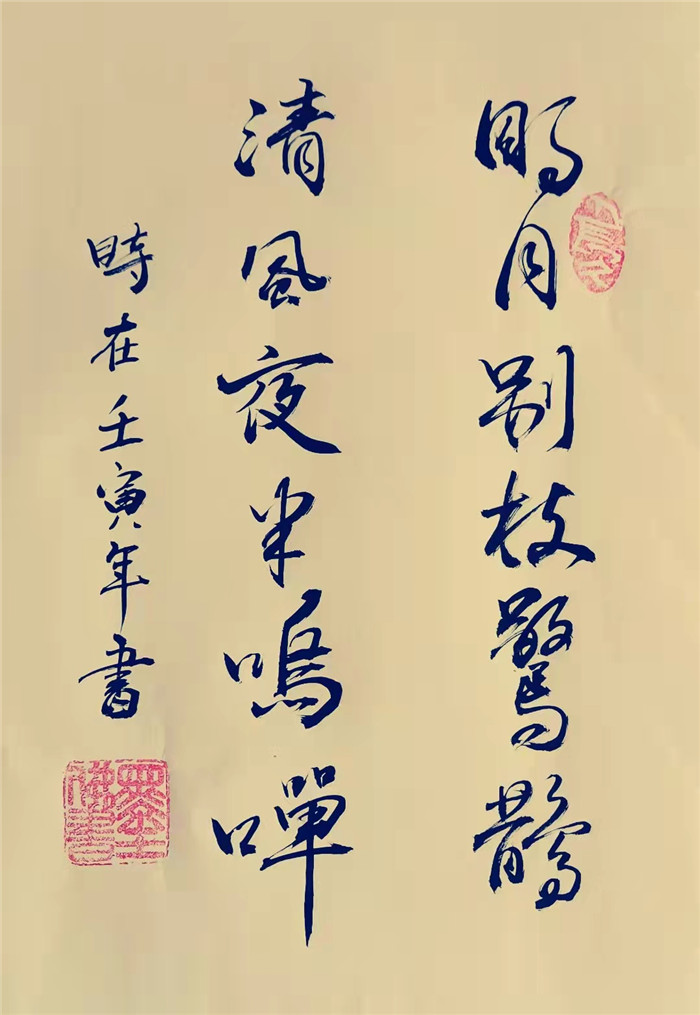 明月别枝驚鵲
清風夜半鳴嘽
時在壬寅年書